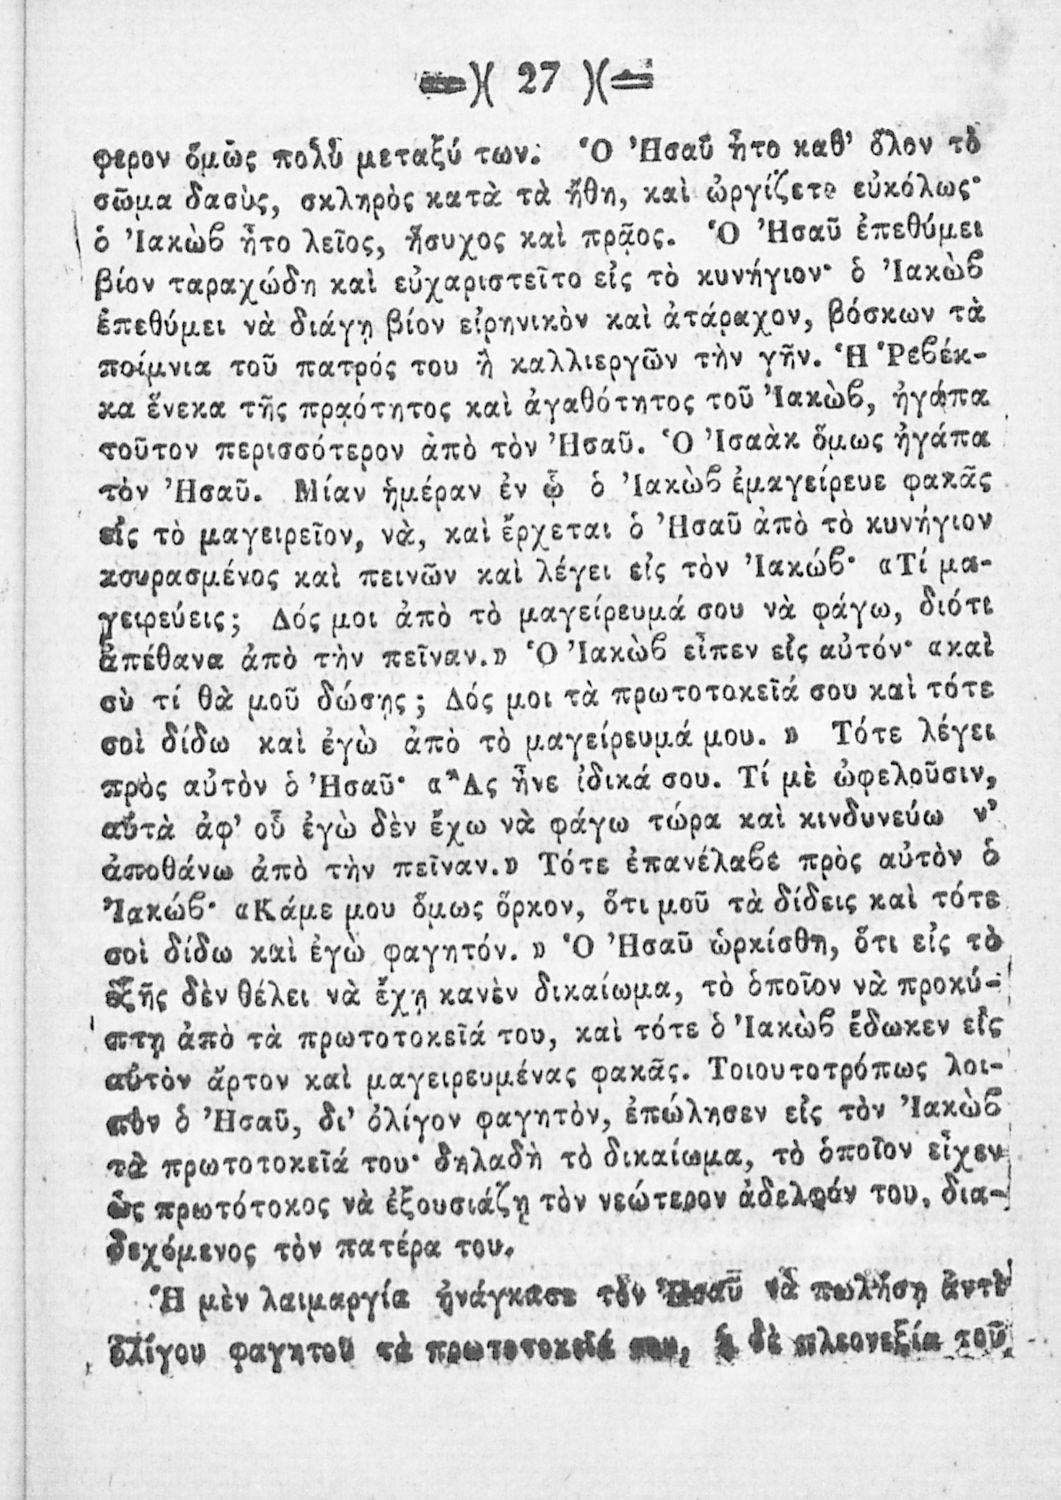 27
φερον ὅμως πολὺ μεταξύ των. Ὁ Ἠσαῦ ἦτο καθ’ ὅλον τὸ
σῶμα δασὺς, σκληρὸς κατὰ τὰ ἤθη, καὶ ὠργίζετο εὐκόλως·
ὁ Ἰακὼϐ ἦτο λεῖος, ἥσυχος καὶ πρᾷος. Ὁ Ἠσαῦ ἐπεθύμει
βίον ταραχώδη καὶ εὐχαριστεῖτο εἰς τὸ κυνήγιον· ὁ Ἰακὼϐ
ἐπεθύμει νὰ διάγῃ βίον εἰρηνικὸν καὶ ἀτάραχον, βόσκων τὰ
ποίμνια τοῦ πατρός του ἢ καλλιεργῶν τὴν γῆν. Ἡ Ῥεϐέκ-
κα ἕνεκα τῆς πρᾳότητος καὶ ἀγαθότητος τοῦ Ἰακὼϐ, ἠγάπα
τοῦτον περισσότερον ἀπὸ τὸν Ἠσαῦ. Ὁ Ἰσαὰκ ὅμως ἠγάπα
τὸν Ἠσαῦ. Μίαν ἡμέραν ἐν ᾧ ὁ Ἰακὼϐ ἐμαγείρευε φακᾶς
εἰς τὸ μαγειρεῖον, νὰ, καὶ ἔρχεται ὁ Ἠσαῦ ἀπὸ τὸ κυνήγιον
κουρασμένος καὶ πεινῶν καὶ λέγει εἰς τὸν Ἰακώϐ· «Τί μα-
γειρεύεις; Δός μοι ἀπὸ τὸ μαγείρευμά σου νὰ φάγω, διότι
ἀπέθανα ἀπὸ τὴν πεῖναν.» Ὁ Ἰακὼϐ εἶπεν εἰς αὐτόν· «καὶ
σὺ τί θὰ μοῦ δώσῃς; Δός μοι τὰ πρωτοτοκεῖά σου καὶ τότε
σοὶ δίδω καὶ ἐγὼ ἀπὸ τὸ μαγείρευμά μου.» Τότε λέγει
πρὸς αὐτὸν ὁ Ἠσαῦ· «Ἂς ἦνε ἰδικά σου. Τί μὲ ὠφελοῦσιν,
αὐτὰ ἀφ’ οὗ ἐγὼ δὲν ἔχω νὰ φάγω τώρα καὶ κινδυνεύω ν’
ἀποθάνω ἀπὸ τὴν πεῖναν.» Τότε ἐπανέλαϐε πρὸς αὐτὸν ὁ
Ἰακώϐ· «Κάμε μου ὅμως ὅρκον, ὅτι μοῦ τὰ δίδεις καὶ τότε
σοὶ δίδω καὶ ἐγὼ φαγητόν.» Ὁ Ἠσαῦ ὡρκίσθη, ὅτι εἰς τὸ
ἑξῆς δὲν θέλει νὰ ἔχῃ κανὲν δικαίωμα, τὸ ὁποῖον νὰ προκύ-
πτῃ ἀπὸ τὰ πρωτοτοκεῖά του, καὶ τότε ὁ Ἰακὼϐ ἔδωκεν εἰς
αὐτὸν ἄρτον καὶ μαγειρευμένας φακᾶς. Τοιουτοτρόπως λοι-
πὸν ὁ Ἠσαῦ, δι’ ὀλίγον φαγητὸν, ἐπώλησεν εἰς τὸν Ἰακὼϐ
τὰ πρωτοτοκεῖά του· δηλαδὴ τὸ δικαίωμα, τὸ ὁποῖον εἶχεν
ὡς πρωτότοκος νὰ ἐξουσιάζῃ τὸν νεώτερον ἀδελφόν του, δια-
δεχόμενος τὸν πατέρα του.
Ἡ μὲν λαιμαργία ἠνάγκασε τὸν Ἠσαῦ νὰ πωλήσῃ ἀντὶ
ὀλίγου φαγητοῦ τὰ πρωτοτοκεῖά του, ἡ δὲ πλεονεξία τοῦ